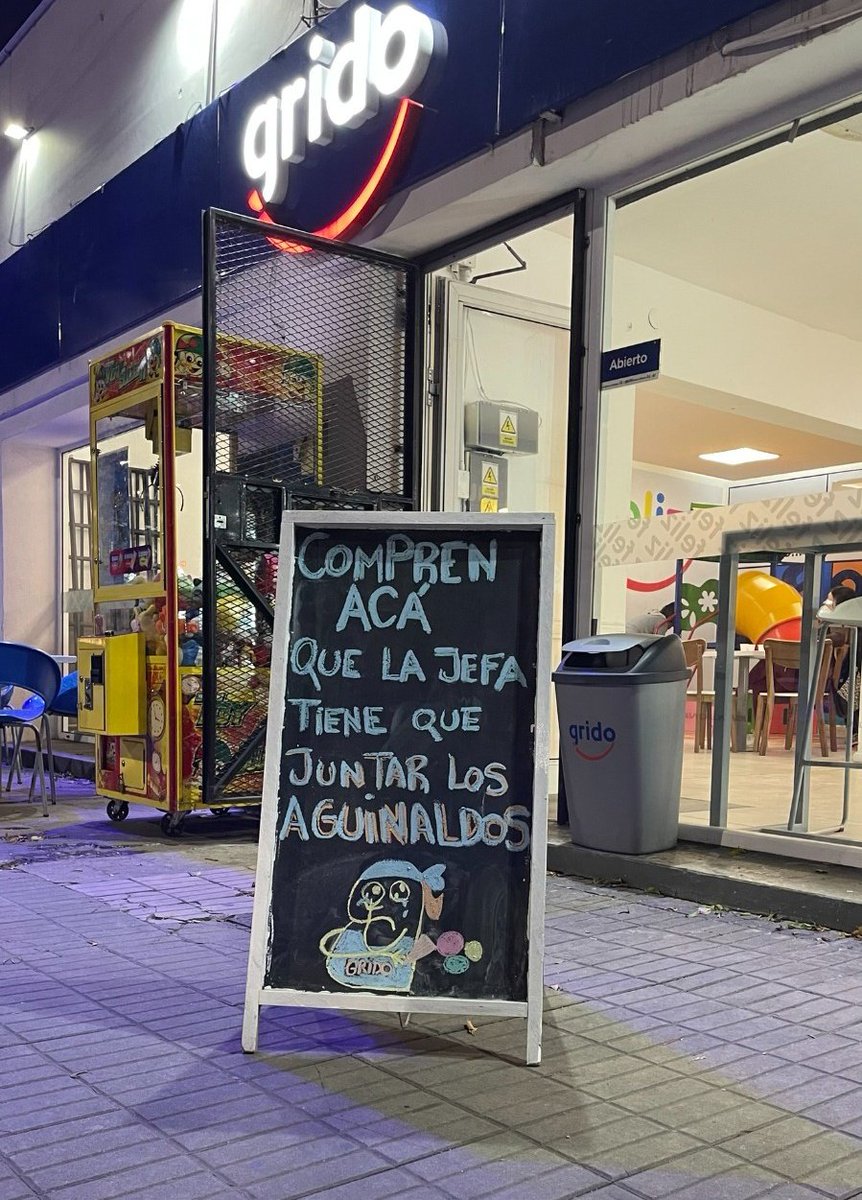 grido
Abierto
COMPREN
ACÁ
QUE LA JEFA
TIENE QUE
JUNTAR LOS
AGUINALDOS
GRIDO
grido